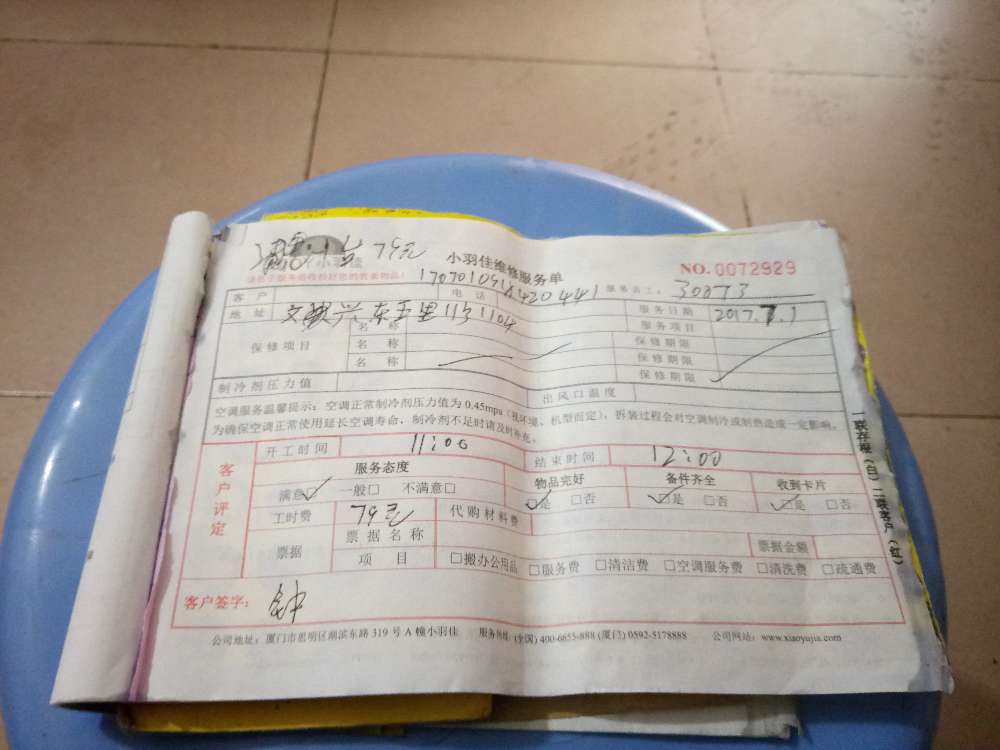 79元
小羽佳 小羽佳维修服务单 NO.0072929
1707010918420441 服务员工: 30873
客户 电话 服务日期 2017.7.1
地址 东玉里11号1104 服务项目
保修项目 名称 保修期限
名称 保修期限
名称 保修期限
制冷剂压力值 出风口温度
空调服务温馨提示:空调正常制冷剂压力值为0.45mpa(视环境、机型而定),拆装过程会对空调制冷或制热造成一定影响,
为确保空调正常使用延长空调寿命,制冷剂不足时请及时补充。
开工时间 11:00 结束时间 12:00
客户评定 服务态度 物品完好 备件齐全 收到卡片
满意 一般□ 不满意□ □是 □否 □是 □否 □是 □否
工时费 79元 代购材料费
票据 票据名称 票据金额
项目 □搬办公用品 □服务费 □清洁费 □空调服务费 □清洗费 □疏通费
客户签字: 钟
公司地址:厦门市思明区湖滨东路319号A幢小羽佳 服务热线 (全国)400-6655-888 (厦门)0592-5178888 公司网站:www.xiaoyujia.com
一联存根(白) 二联客户(红)